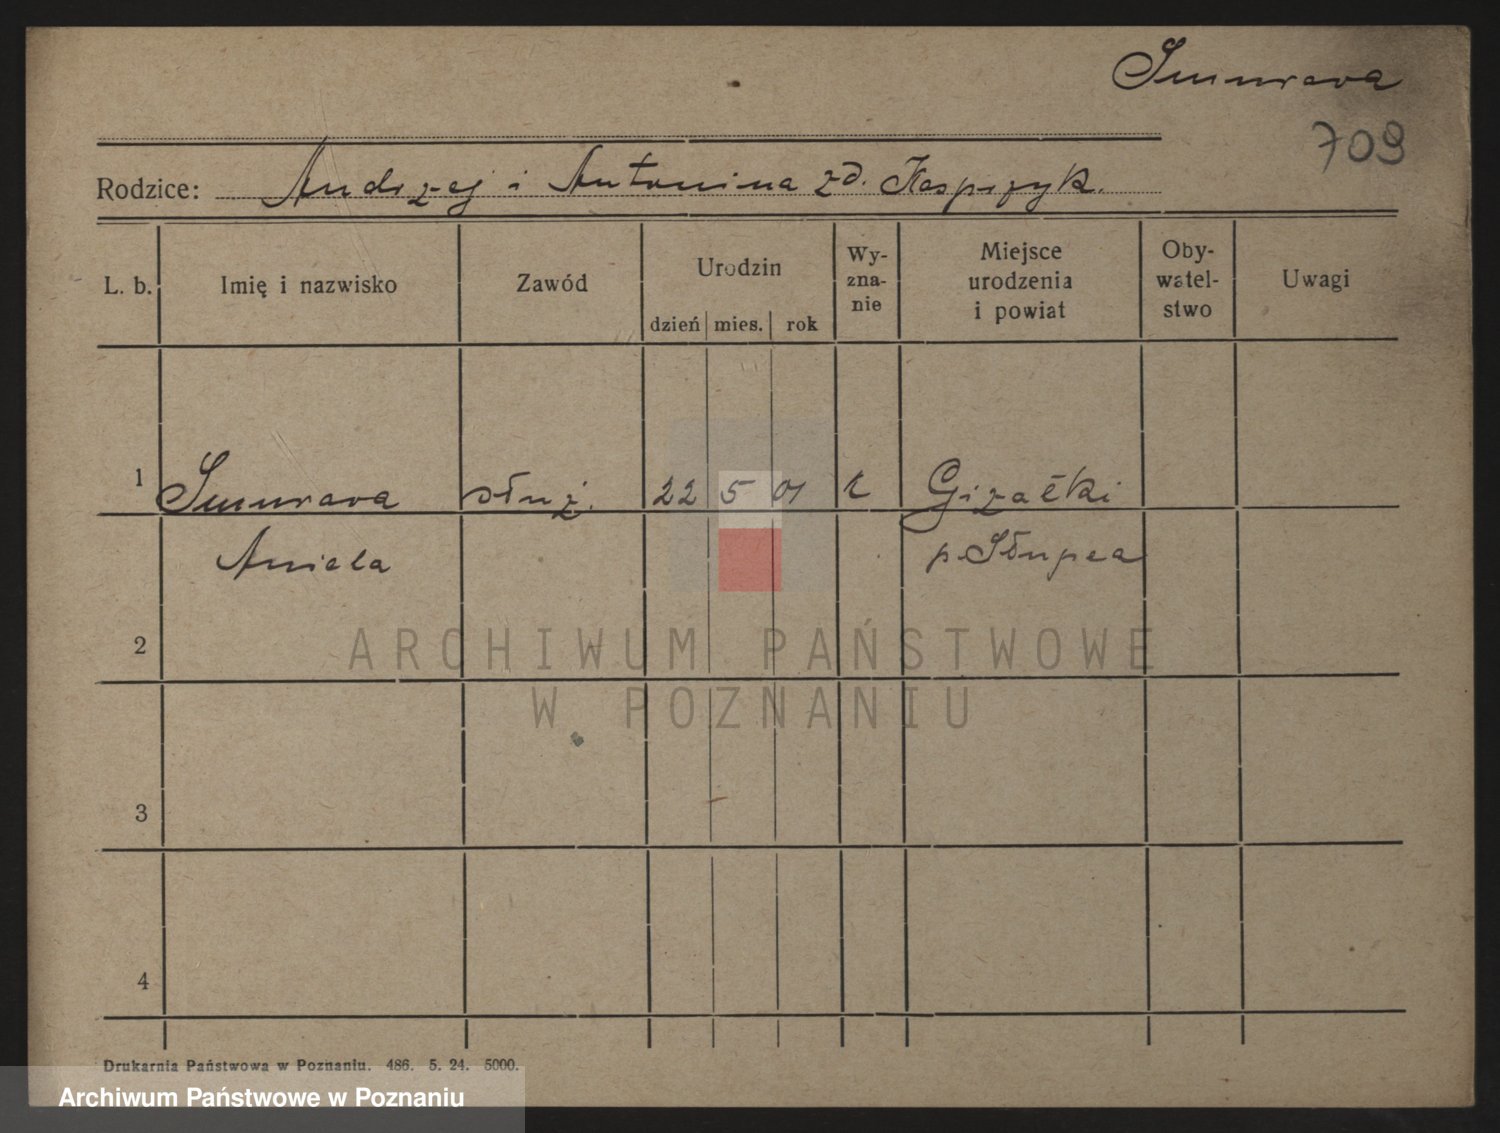 Smurawa
709
Rodzice: Andrzej i Antonina zd. Kasprzyk.
L. b. Imię i nazwisko Zawód Urodzin dzień mies. rok Wy-zna-nie Miejsce urodzenia i powiat Oby-watel-stwo Uwagi
1 Smurawa służ. 22 5 01 k Gizałki
Aniela p. Słupca
2
3
4
Drukarnia Państwowa w Poznaniu. 486. 5. 24. 5000.
ARCHIWUM PAŃSTWOWE
W POZNANIU
Archiwum Państwowe w Poznaniu